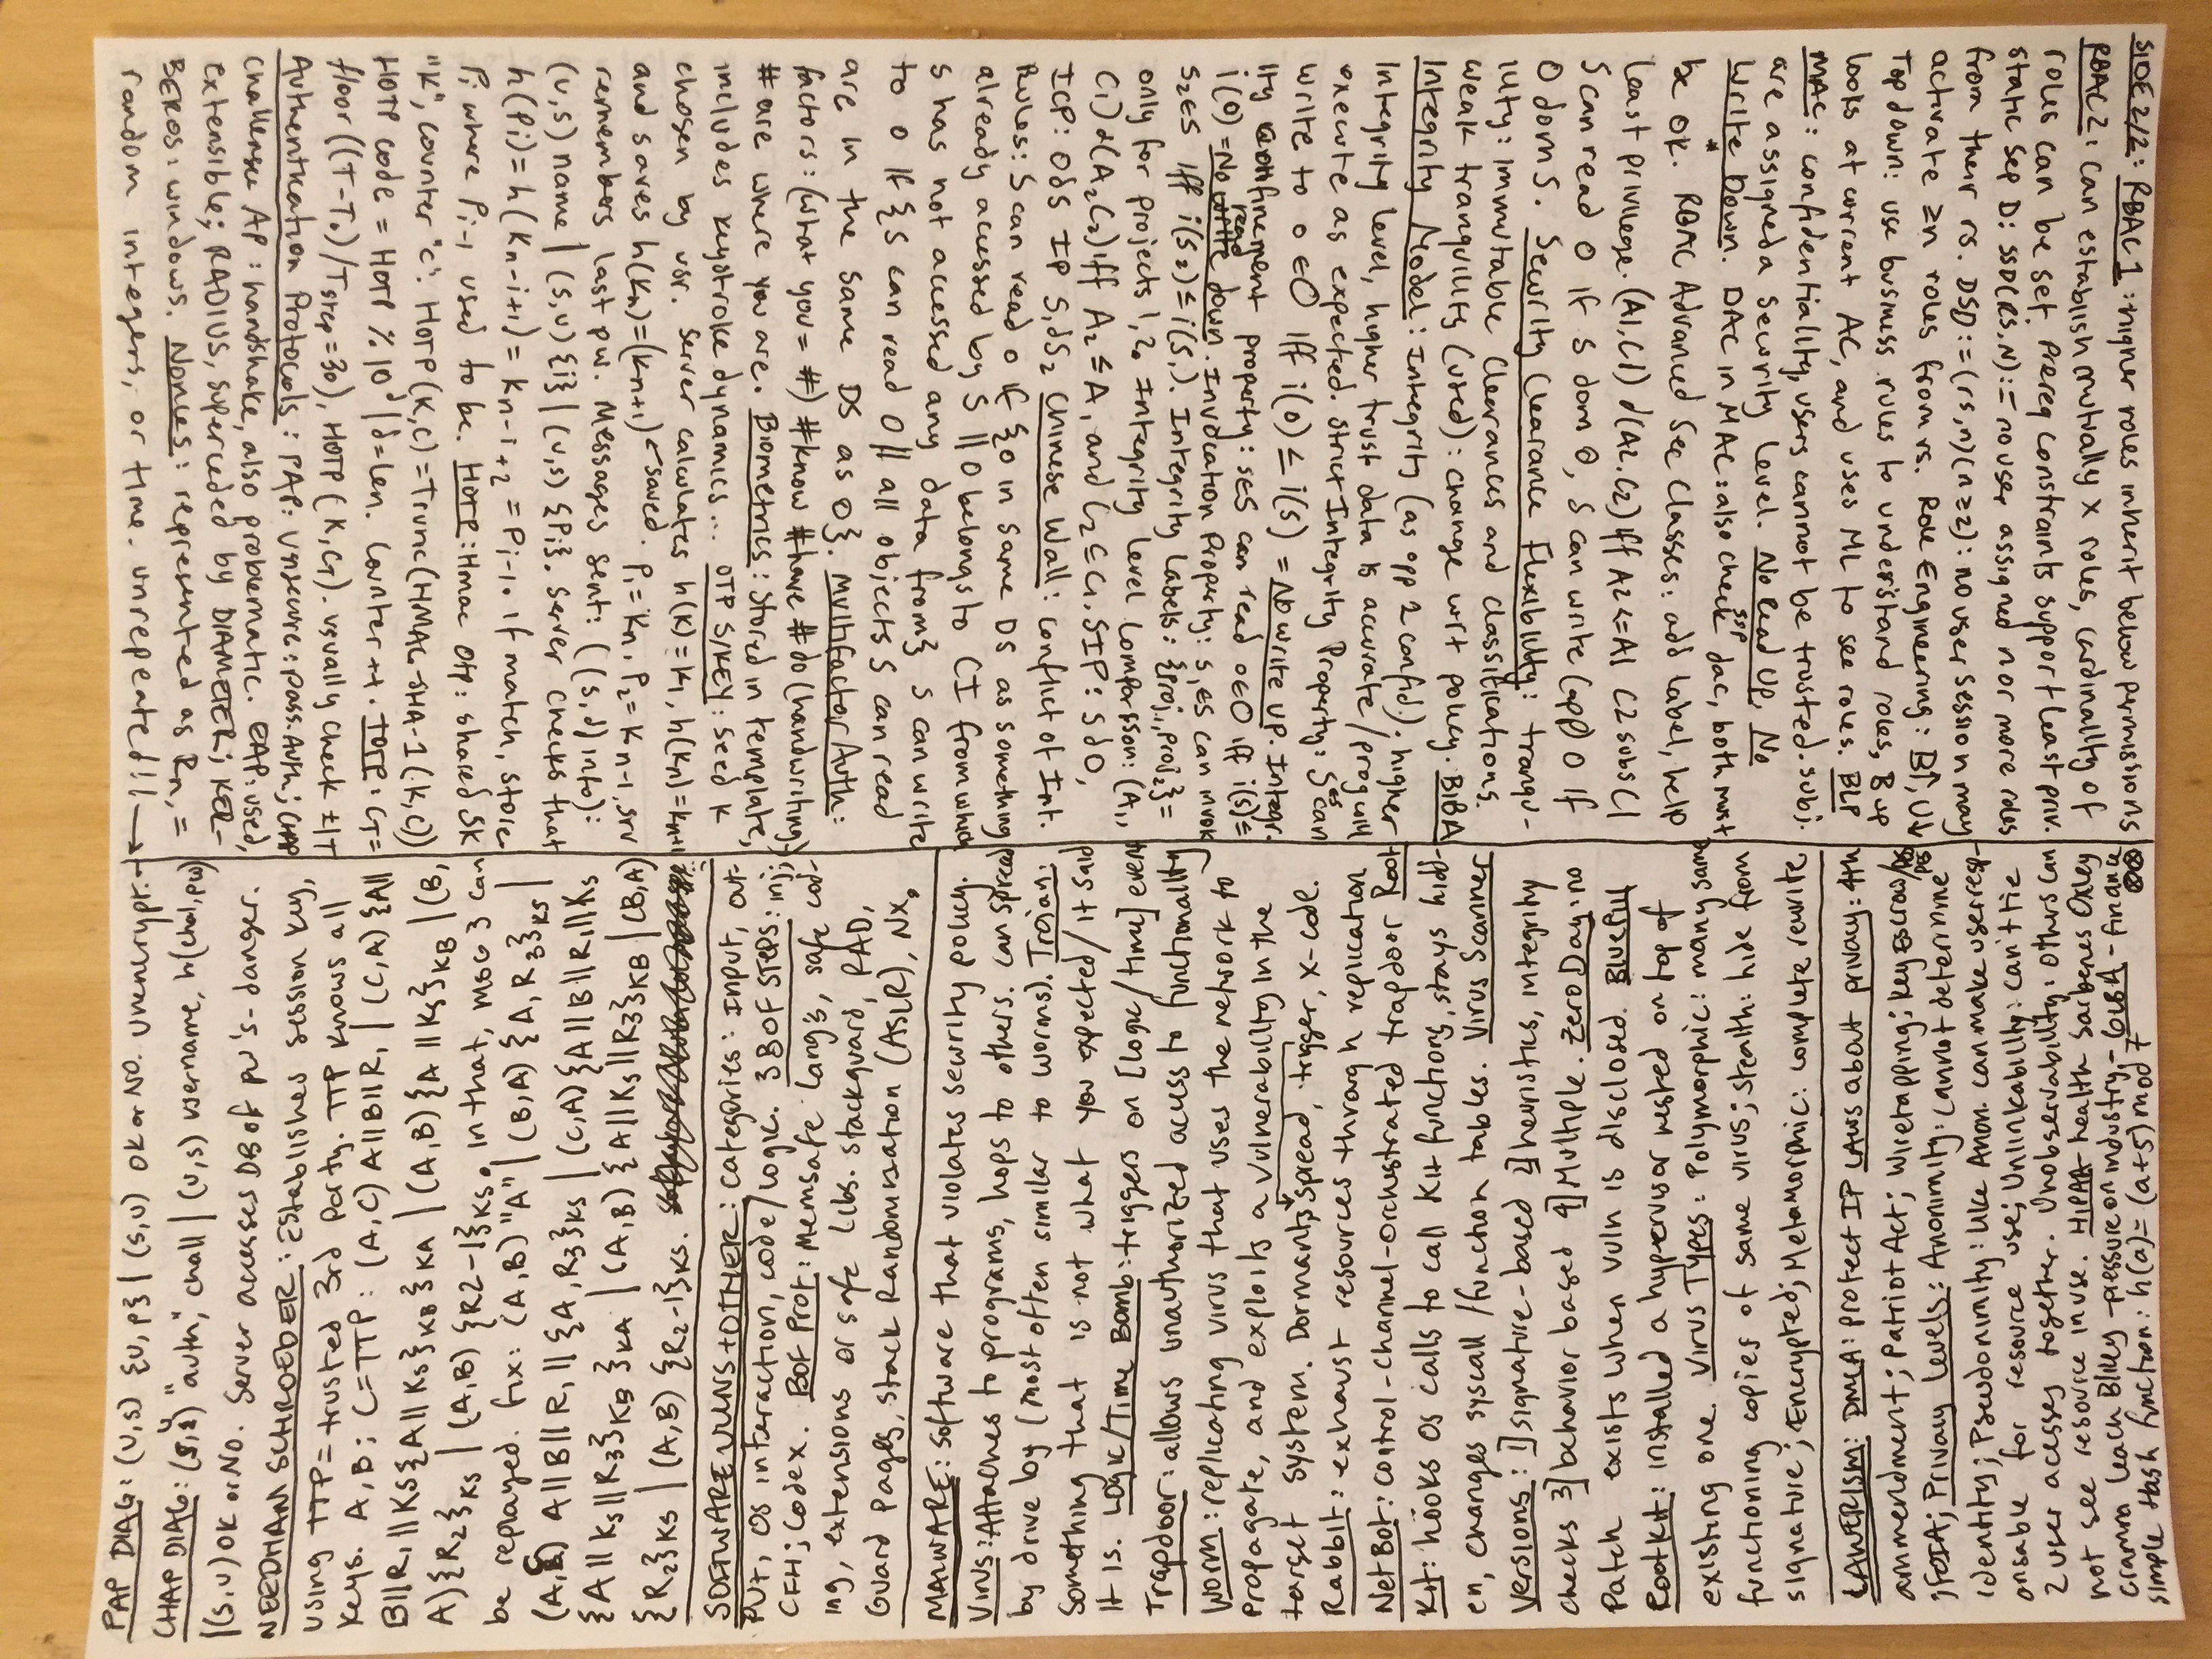 PAP DIAG: (U,S) {U,P} | (S,U) OK or NO. Unencrypt.
CHAP DIAG: (S,U) "auth", chall | (U,S) username, h(chal,pw)
|(S,U) OK or NO. Server accesses DB of pw's - danger.
NEEDHAM SCHROEDER: Establishes session key,
using TTP = trusted 3rd Party. TTP knows all
keys. A,B; C=TTP: (A,C) A||B||R1 | (C,A) {A||
B||R1||KS{A||KS}KB}KA | (A,B) {A||KS}KB | (B,
A){R2}KS | (A,B) {R2-1}KS. in that, MSG 3 can
be replayed. fix: (A,B) "A" | (B,A) {A,R3}KS |
(A,C) A||B||R1||{A,R3}KS | (C,A){A||B||R1||KS
{A||KS||R3}KB}KA | (A,B) {A||KS||R3}KB | (B,A)
{R2}KS | (A,B) {R2-1}KS.
SOFTWARE VULNS+OTHER: categories: Input, out-
put, OS interaction, code/logic. 3 BOF STEPS: inj;
CFH; Codex. BOF Prot: Memsafe lang's, safe cod-
ing, extensions or safe Libs. stackguard, RAD,
Guard Pages, stack Randomization (ASLR), NX.
MALWARE: Software that violates security policy.
Virus: Attaches to programs, hops to others. can spread
by drive by (most often similar to worms). Trojan:
Something that is not what you expected/it said
it is. Logic/Time Bomb: triggers on [logic/time] event
Trapdoor: allows unauthorized acess to functionality
Worm: replicating virus that uses the network to
propagate, and exploits a vulnerability in the
target system. Dormant, spread, trigger, x-code.
Rabbit: exhaust resources through replication
Net Bot: control-channel-orchestrated trapdoor Root
Kit: hooks OS calls to call Kit functions, stays hidd-
en, changes syscall/function tables. Virus Scanner
versions: 1] signature-based 2] heuristics, integrity
checks 3] behavior based 4] Multiple. Zero Day: no
Patch exists when vuln is disclosed. Bluepill
Rootkit: installed a hypervisor nested on top of
existing one. Virus Types: Polymorphic: many same
functioning copies of same virus; stealth: hide from
signature; Encrypted; Metamorphic: complete rewrite
LAWERISM: DMCA: protect IP LAWS about privacy: 4th
ammendment; Patriot Act; Wiretapping; Key Escrow/
;FOIA; Privacy levels: Anonimity: cannot determine
identity; Pseudonimity: like Anon. can make user resp-
onsable for resource use; Unlinkability: can't tie
2 user acesses together. Unobservability: others can
not see resource in use. HIPAA-health Sarbenes Oxley
Gramm Leach Bliley -pressure on industry,- GLBA - finance
simple Hash function: h(a) = (a+5) mod 7
SIDE 2/2: RBAC 1: higher roles inherit below permissions
RBAC 2: can establish mutually x roles, cardinality of
roles can be set. Prereq constraints support least priv.
Static Sep D: SSD(RS,N):= no user assigned n or more roles
from their rs. DSD:=(rs,n)(n≥2): no user session may
activate ≥n roles from rs. Role Engineering: B↑,U↓
Top down: use business rules to understand roles, B up
looks at current AC, and uses ML to see roles. BLP
MAC: confidentiality, users cannot be trusted. subj.
are assigned a security level. No Read Up, No
Write Down. DAC in MAC: also check dac, both must
be OK. RBAC Advanced Sec Classes: add label, help
Least privilege. (A1,C1) d (A2,C2) iff A2<=A1 C2 subs C1
S can read O if S dom O, S can write (app) O if
O dom S. Security Clearance Flexibility: tranqu-
ility: immutable clearances and classifications.
weak tranquility (used): change wrt policy. BIBA
Integrity Model: Integrity (as opp 2 confid). higher
Integrity level, higher trust data is accurate/prog will
execute as expected. Strict Integrity Property: S∈S can
write to o∈O iff i(o) ≤ i(s) = No write UP. Integr.
ity confinement property: s∈S can read o∈O iff i(s)≤
i(o) = No read down. Invocation Property: s1∈S can invok
s2∈S iff i(s2)≤i(s1). Integrity labels: {proj1,proj2}=
only for projects 1,2. Integrity Level comparison: (A1,
C1)d(A2,C2) iff A2≤A1 and C2⊆C1. SIP: SdO,
ICP: OdS IP S1dS2 Chinese Wall: conflict of Int.
Rules: S can read O if {O in same DS as something
already accessed by S || O belongs to CI from which
S has not accessed any data from} S can write
to O if {S can read O || all objects S can read
are in the same DS as O}. Multifactor Auth:
factors: (what you = #) #know #have #do (handwriting)
#are where you are. Biometrics: Stored in template,
includes keystroke dynamics... OTP S/KEY: Seed k
chosen by usr. server calculates h(k)=k1, h(kn)=kn+1
and saves h(kn)=(kn+1)←saved. P1=Kn, P2=Kn-1, srv
remembers last pw. Messages sent: ((s,d)info):
(u,s) name | (s,u) {i} | (u,s) {Pi}. Server checks that
h(Pi)=h(Kn-i+1)=Kn-i+2=Pi-1. if match, store
Pi where Pi-1 used to be. HOTP: Hmac OTP: shared SK
"K", counter "c". HOTP(K,C)=Trunc(HMAC-SHA-1(K,C))
HOTP code = HOTP % 10^d | d=len. Counter++. TOTP: CT=
floor((T-T0)/Tstep=30), HOTP(K,CT). usually check ±1T
Authentication Protocols: PAP: Unsecure: pass. Auth; CHAP
challenge AP: handshake, also problematic. EAP: used,
extensible; RADIUS, superceded by DIAMETER; KER-
BEROS: windows. Nonces: represented as Rn, =
random integers, or time. unrepeated!!